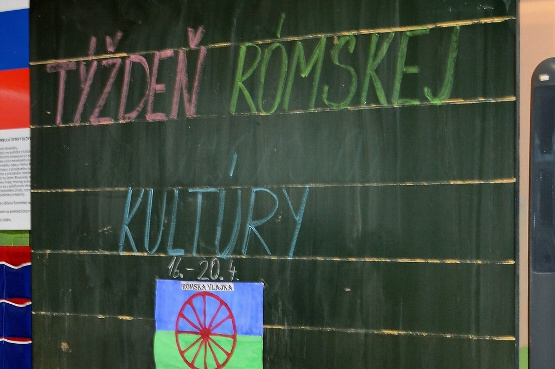 TÝŽDEŇ RÓMSKEJ
KULTÚRY
16.-20.4.
RÓMSKA VLAJKA